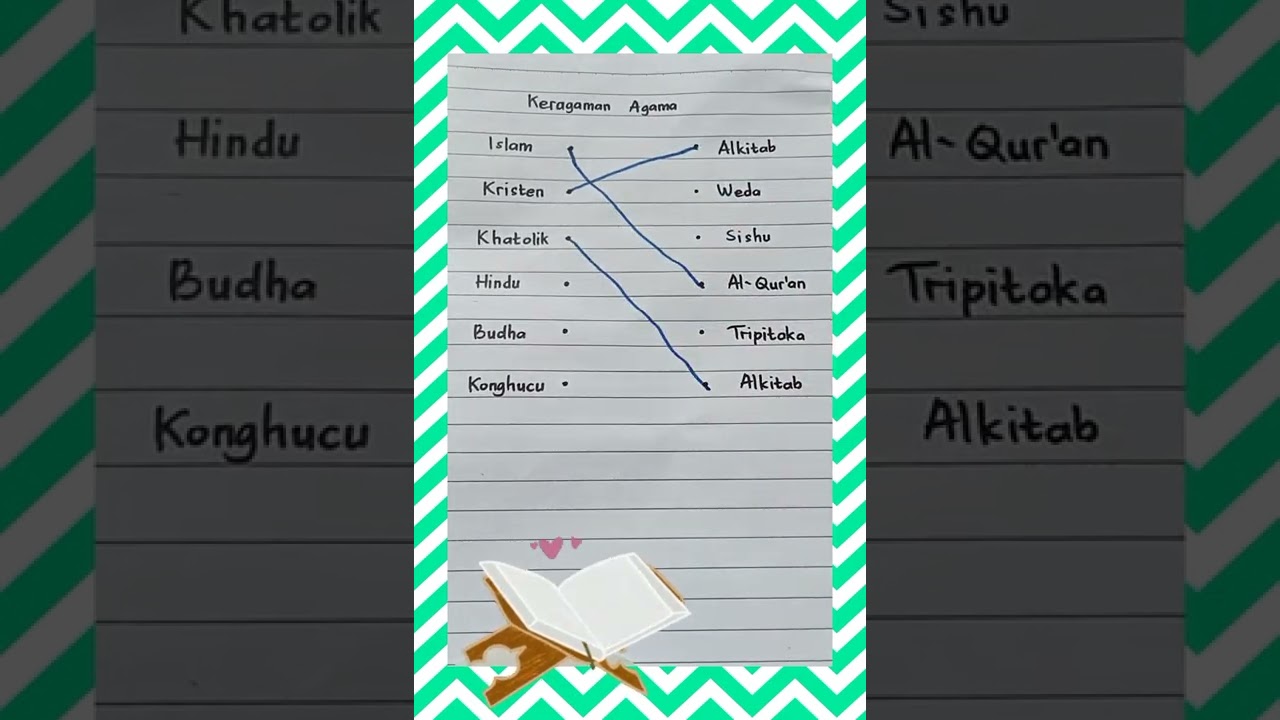 Keragaman Agama
Islam Alkitab
Kristen Weda
Khatolik Sishu
Hindu Al-Qur'an
Budha Tripitoka
Konghucu Alkitab
Khatolik Sishu
Hindu Al-Qur'an
Budha Tripitoka
Konghucu Alkitab